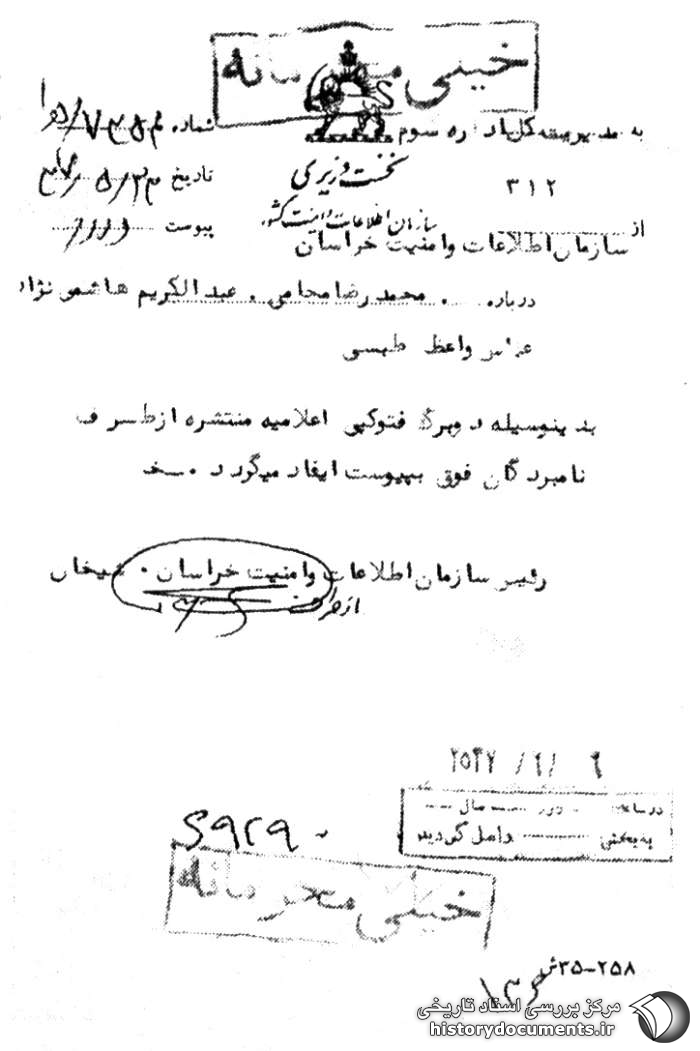 خیلی محرمانه
به مدیریت کل اداره سوم ۳۱۲
شماره
نخست وزیری
تاریخ
سازمان اطلاعات و امنیت کشور
از سازمان اطلاعات وامنیت خراسان
پیوست
درباره . محمد رضا محامی . عبدالکریم هاشمی نژاد
عباس واعظ طبسی
بدینوسیله دوبرگ فتوکپی اعلامیه منتشره ازطرف
نامبردگان فوق بپیوست ایفاد میگردد .
رئیس سازمان اطلاعات وامنیت خراسان . شیخان
از طرف
۲۵۳۷ /۶/ ۶
در ساعت روز سال
به بخش واصل گردید
خیلی محرمانه
۳۵-۲۵۸ش
مرکز بررسی اسناد تاریخی
historydocuments.ir